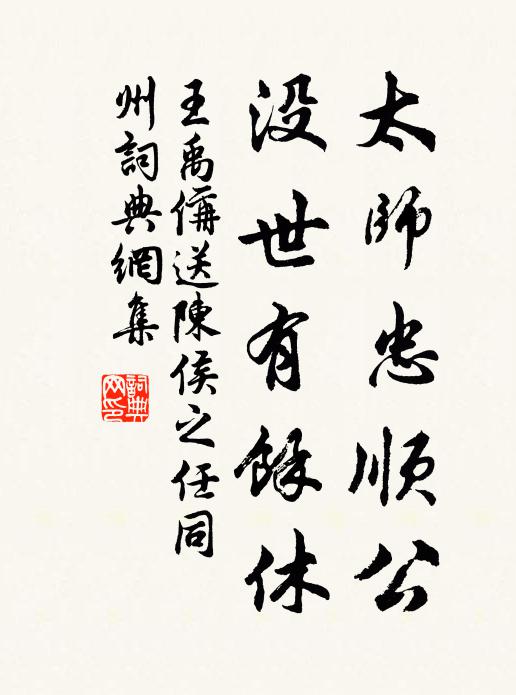 太師忠順公
没世有餘休
王禹偁送陳侯之任同
州詞典網集
詞典
网印